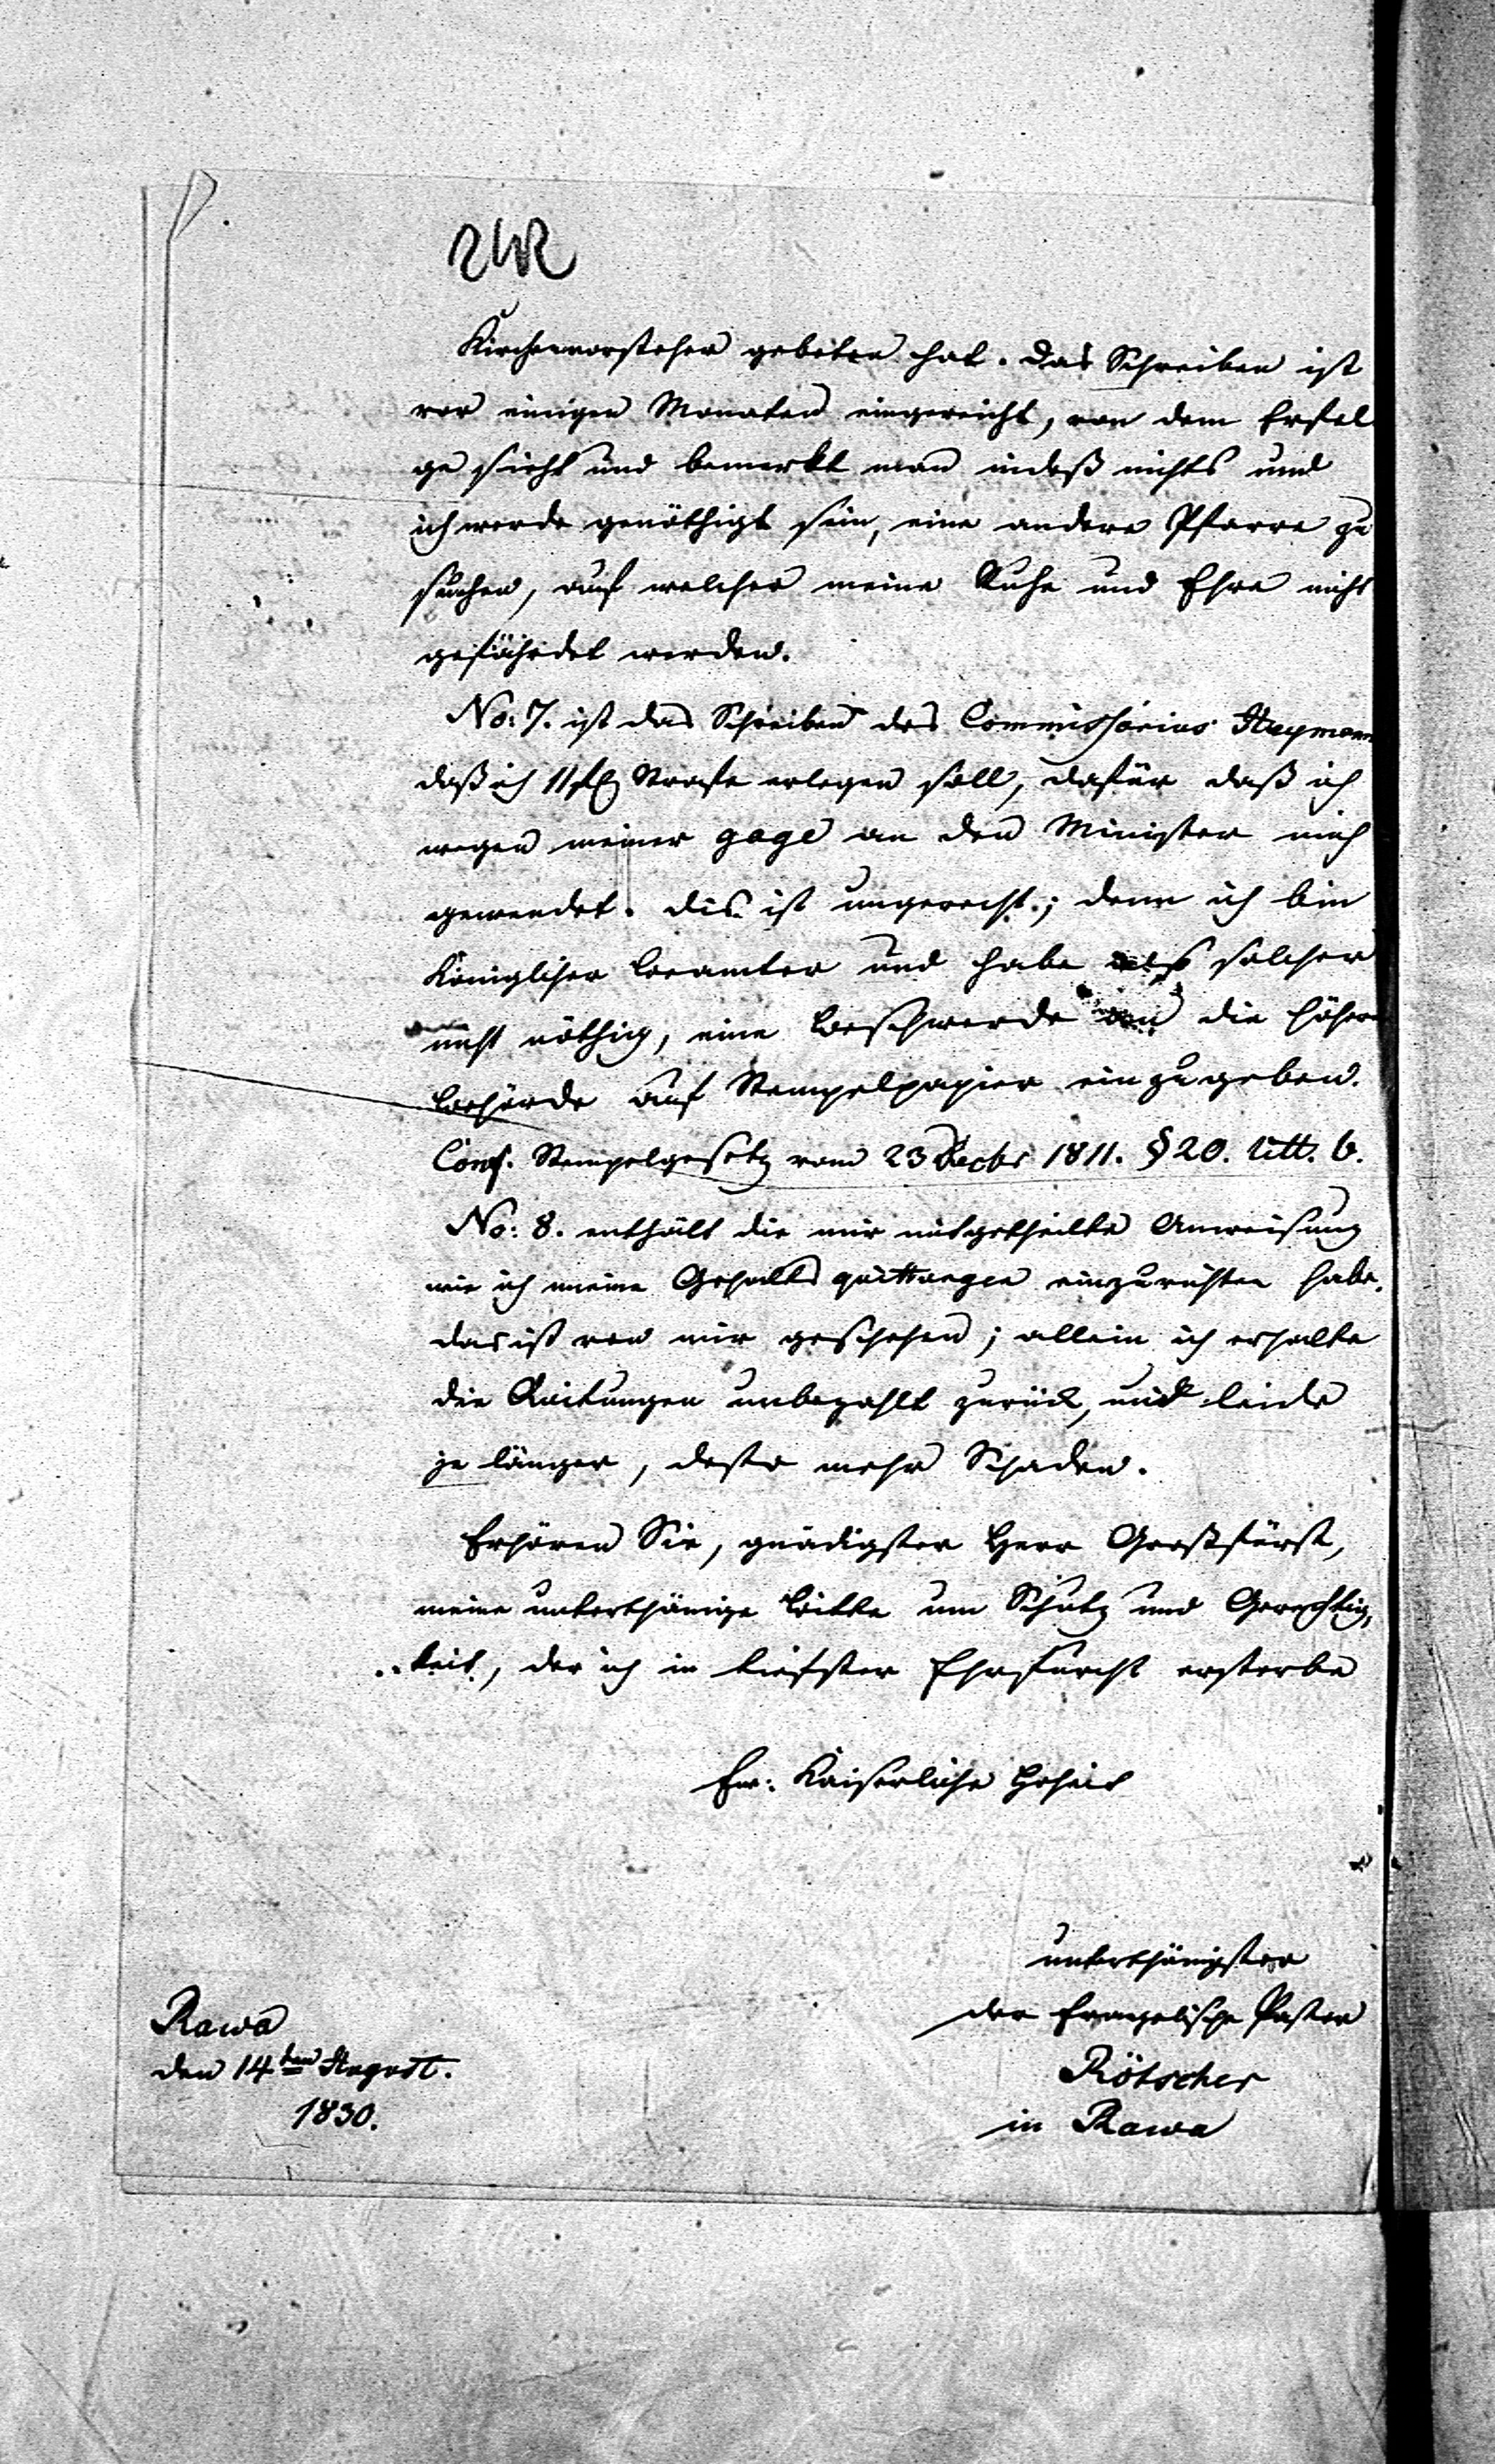 Kirchenvorsteher gebeten hat. Das Schreiben ist
vor einigen Monaten eingereicht, von dem Erfol
ge sieht und bemerkt man indeß nichts und
ich werde genöthigt sein, eine andere Pfarre zu
suchen, auf welcher meine Ruhe und Ehre nicht
gefährdet werden.
No: 7. ist das Schreiben des Commissarius
daß ich 11 Strafe erlegen soll, dafür daß ich
wegen meiner gage an den Minister mich
gewendet. Dis ist ungerecht; denn ich bin
Königlicher Beamter und habe als solcher
nicht nöthig, eine Beschwerde an die höhere
Behörde auf Stempelpapier einzugeben.
Conf. Stempelgesetz vom 23 Decbr 1811. § 20. litt. b.
No: 8. enthält die mir mitgetheilte Anweisung
wie ich meine Gehalts quittungen einzurichten habe.
das ist von mir geschehen; allein ich erhalte
die Quitungen unbezahlt zurück, und leide
je länger, desto mehr Schaden.
Erhören Sie, gnädigster Herr Großfürst,
meine unterthänige Bitte um Schutz und Gerechtig
keit, der ich in tiefster Ehrfurcht ersterbe
Ew. Kaiserliche Hoheit
unterthänigster
der Evangelische Pastor
Rötscher
in Rawa
Rawa
den 14ten August.
1830.